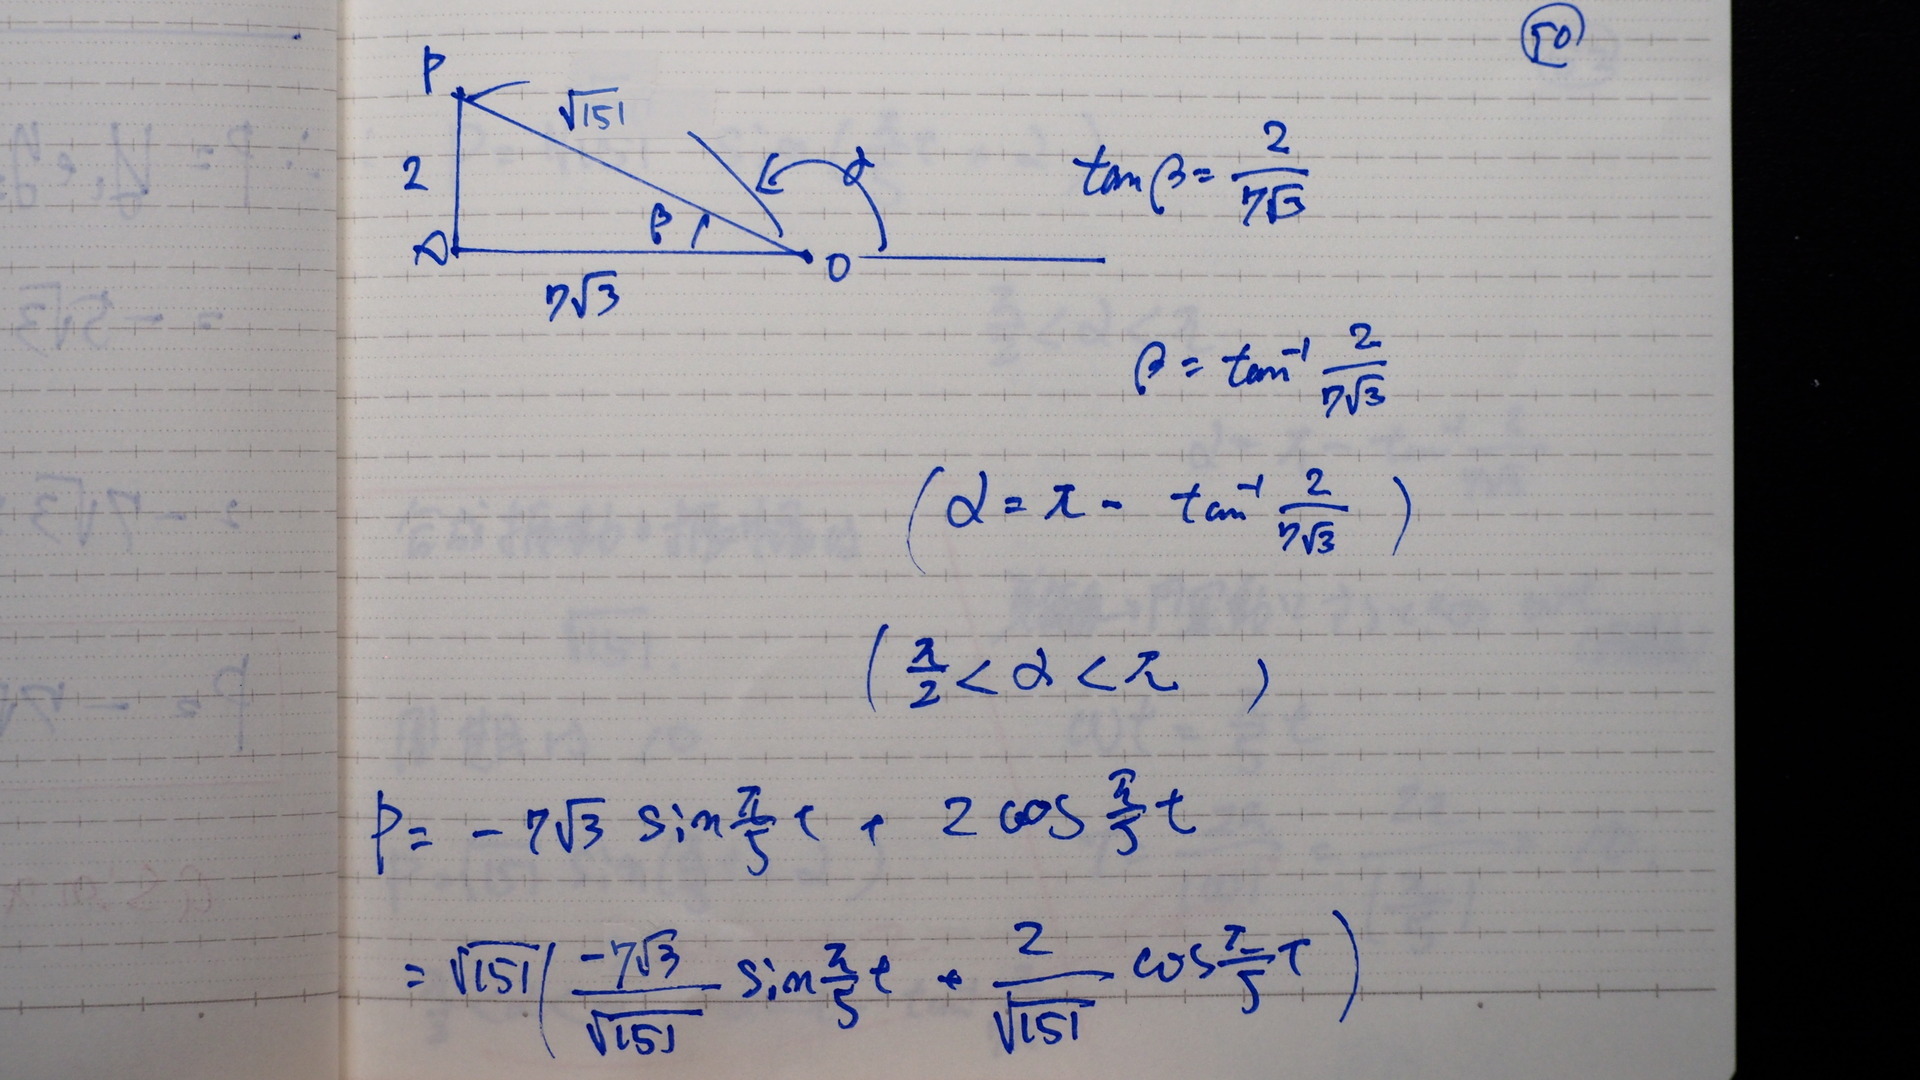 50
P
√151
2
α
β
A
O
7√3
tanβ = 2/7√3
β = tan⁻¹ 2/7√3
(α = π - tan⁻¹ 2/7√3)
(π/2 < α < π)
P = -7√3 sin π/5 t + 2 cos π/5 t
= √151 ( -7√3/√151 sin π/5 t + 2/√151 cos π/5 t )